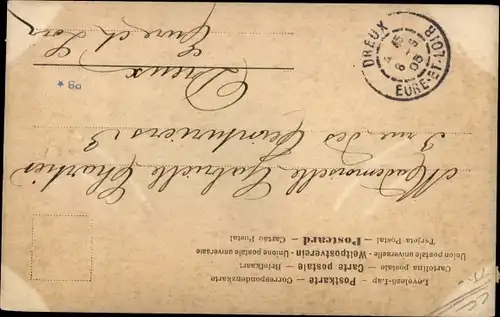 Levelező-Lap
Postkarte — Correspondenzkarte
Carte postale — Briefkaart
Cartolina postale —
Union postale universelle — Weltpostverein - Unione postale universale
Tarjeta Postal — Postcard — Cartão Postal
Mademoiselle Gabrielle Chartier
3 rue des Teinturiers 3
Dreux
Eure et Loir
DREUX
05
EURE-ET-LOIR
PB *